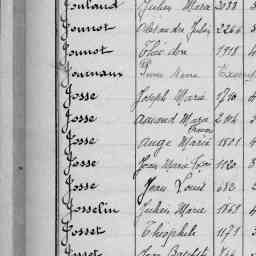 Joulaud Julien Marie 2033
Jounot Alexandre Jules 2266 3
Jounot Théodore 1918 4
Journaux Pierre Marie Exempt
Josse Joseph Marie 1710 4
Josse Armand Marie 2806 3
Josse Ange Marie 1801 4
Josse Jean Marie 1120 3
Josse Jean Louis 632 5
Josselin Julien Marie 1869 4
Josset Théophile 1171 3
Jean Baptiste